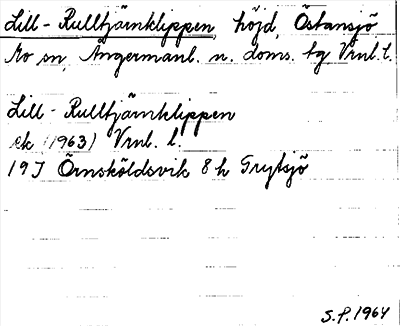 Lill-Rulltjärnklippen, höjd, Östansjö
Mo sn, Ångermanl. n. doms. tg Vrnl. l.
Lill-Rulltjärnklippen
ek (1963) Vrnl. l.
19J Örnsköldsvik 8h Trytsjö
S.P. 1964